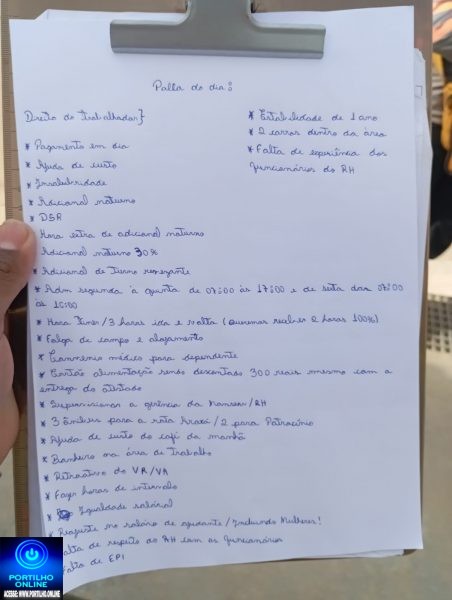 Palta do dia:
Direito do trabalhador}
* Pagamento em dia
* Ajuda de custo
* Insalubridade
* Adicional noturno
* DSR
Hora extra de adicional noturno
Adicional noturno 30%
* Adicional de Turno revezante
* Adm segunda à quinta de 07:00 às 17:00 e de sexta das 07:00
às 16:00
* Hora Itiner/3 horas ida e volta (Queremos receber 2 horas 100%)
* Folga de campo e alojamento
* Convenio médico para dependente
* Cartão alimentação sendo descontado 300 reais mesmo com a
entrega do atestado
* Supervisionar a gerência da /RH
* 3 Ônibus para a rota Araxá/2 para Patrocínio
* Ajuda de custo do café da manhã
* Banheiro na área de Trabalho
* Retroativo do VR/VA
* Fazer horas de intervalo
* Igualdade salárial
* Reajuste no salário de ajudante/Incluindo Mulheres!
Falta de respeito do RH com os funcionários
Falta de EPI
* Estabilidade de 1 ano
* 2 carros dentro da área
* Falta de experiência dos
funcionários do RH
PORTILHO
ONLINE
ACESSE: WWW.PORTILHO.ONLINE